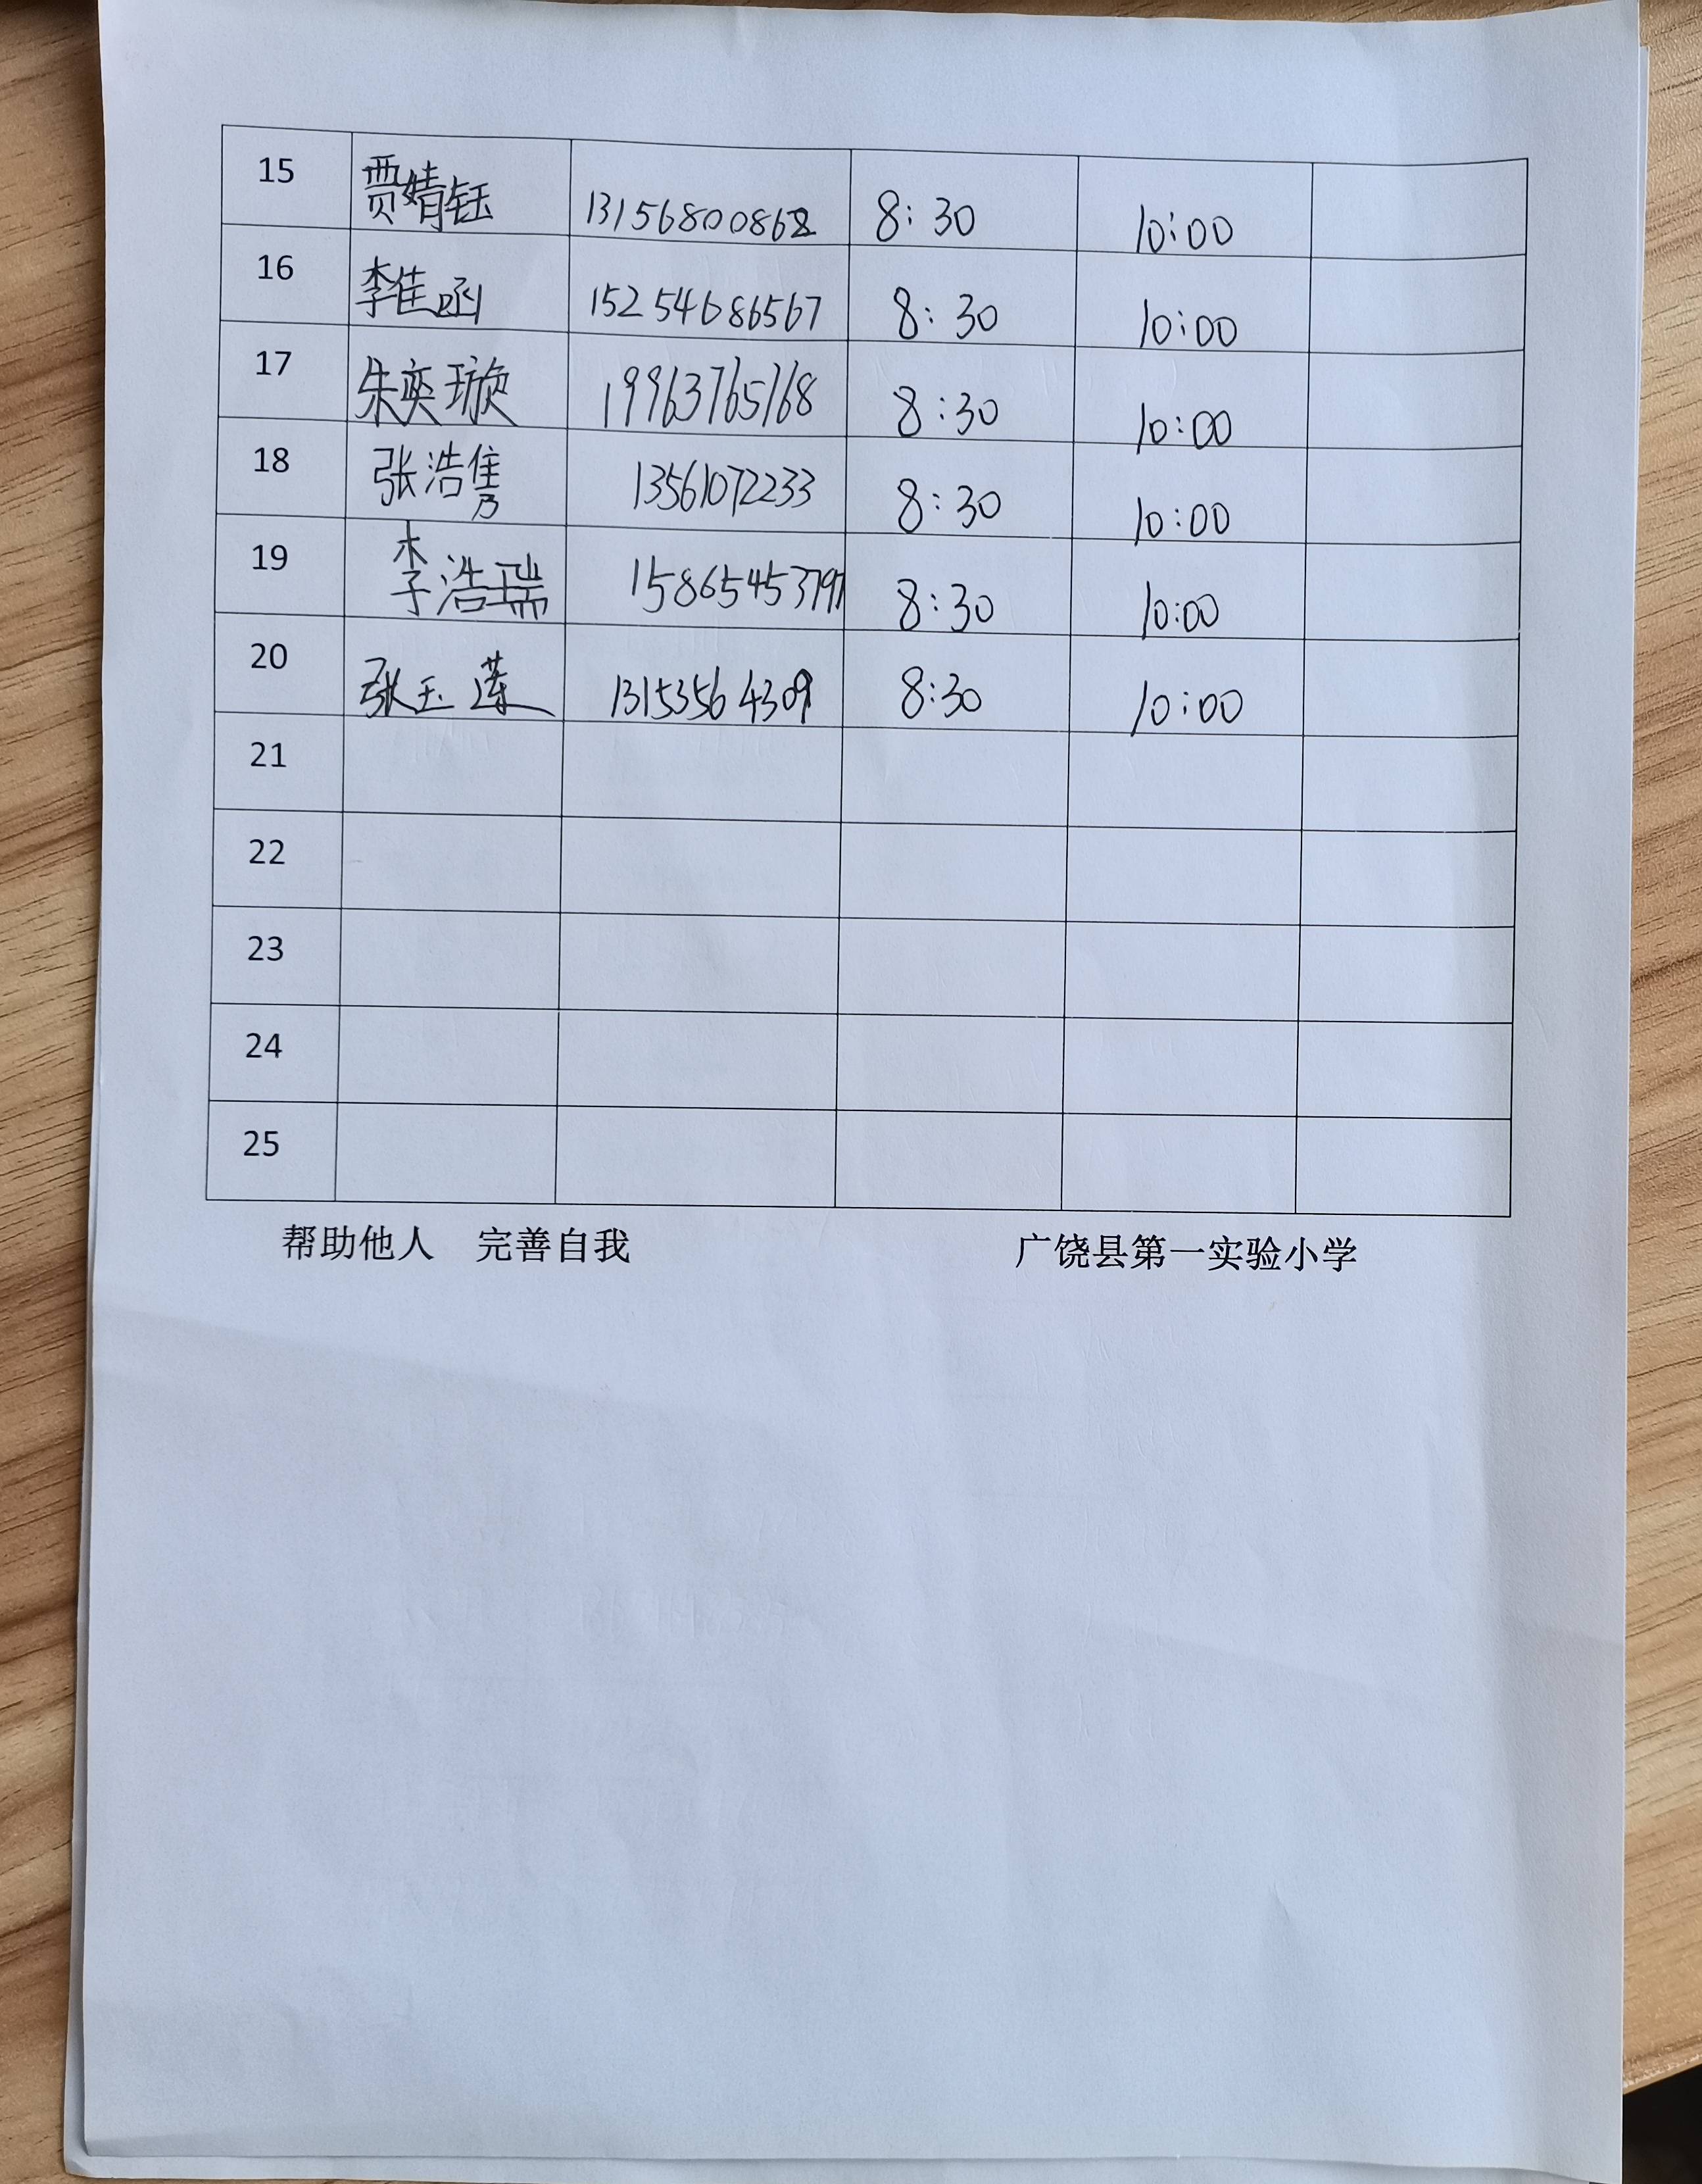 15 贾婧钰 13156800868 8:30 10:00
16 李佳函 15254686567 8:30 10:00
17 朱奕璇 19963765768 8:30 10:00
18 张浩隽 13561072233 8:30 10:00
19 李浩瑞 8:30 10:00
20 张玉莲 13153564309 8:30 10:00
21
22
23
24
25
帮助他人 完善自我 广饶县第一实验小学